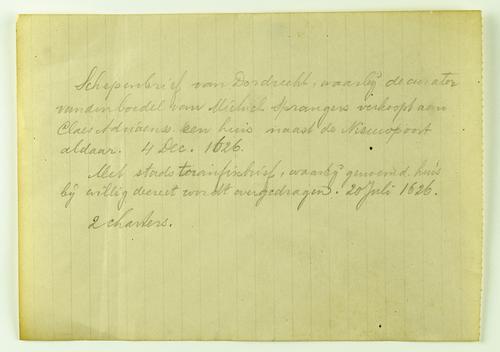 Schepenbrief van Dordrecht, waarbij de curator
van den boedel van Michiel Sprangers verkoopt aan
Claes Adriaensz een huis naast de Nieuwpoort
aldaar. 4 Dec. 1626.
Met stads transfixbrief, waarbij genoemd huis
bij willig decreet wordt overgedragen. 20 Juli 1626.
2 charters.